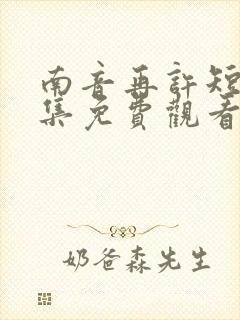 南音再許短
集免費觀看
奶爸森先生